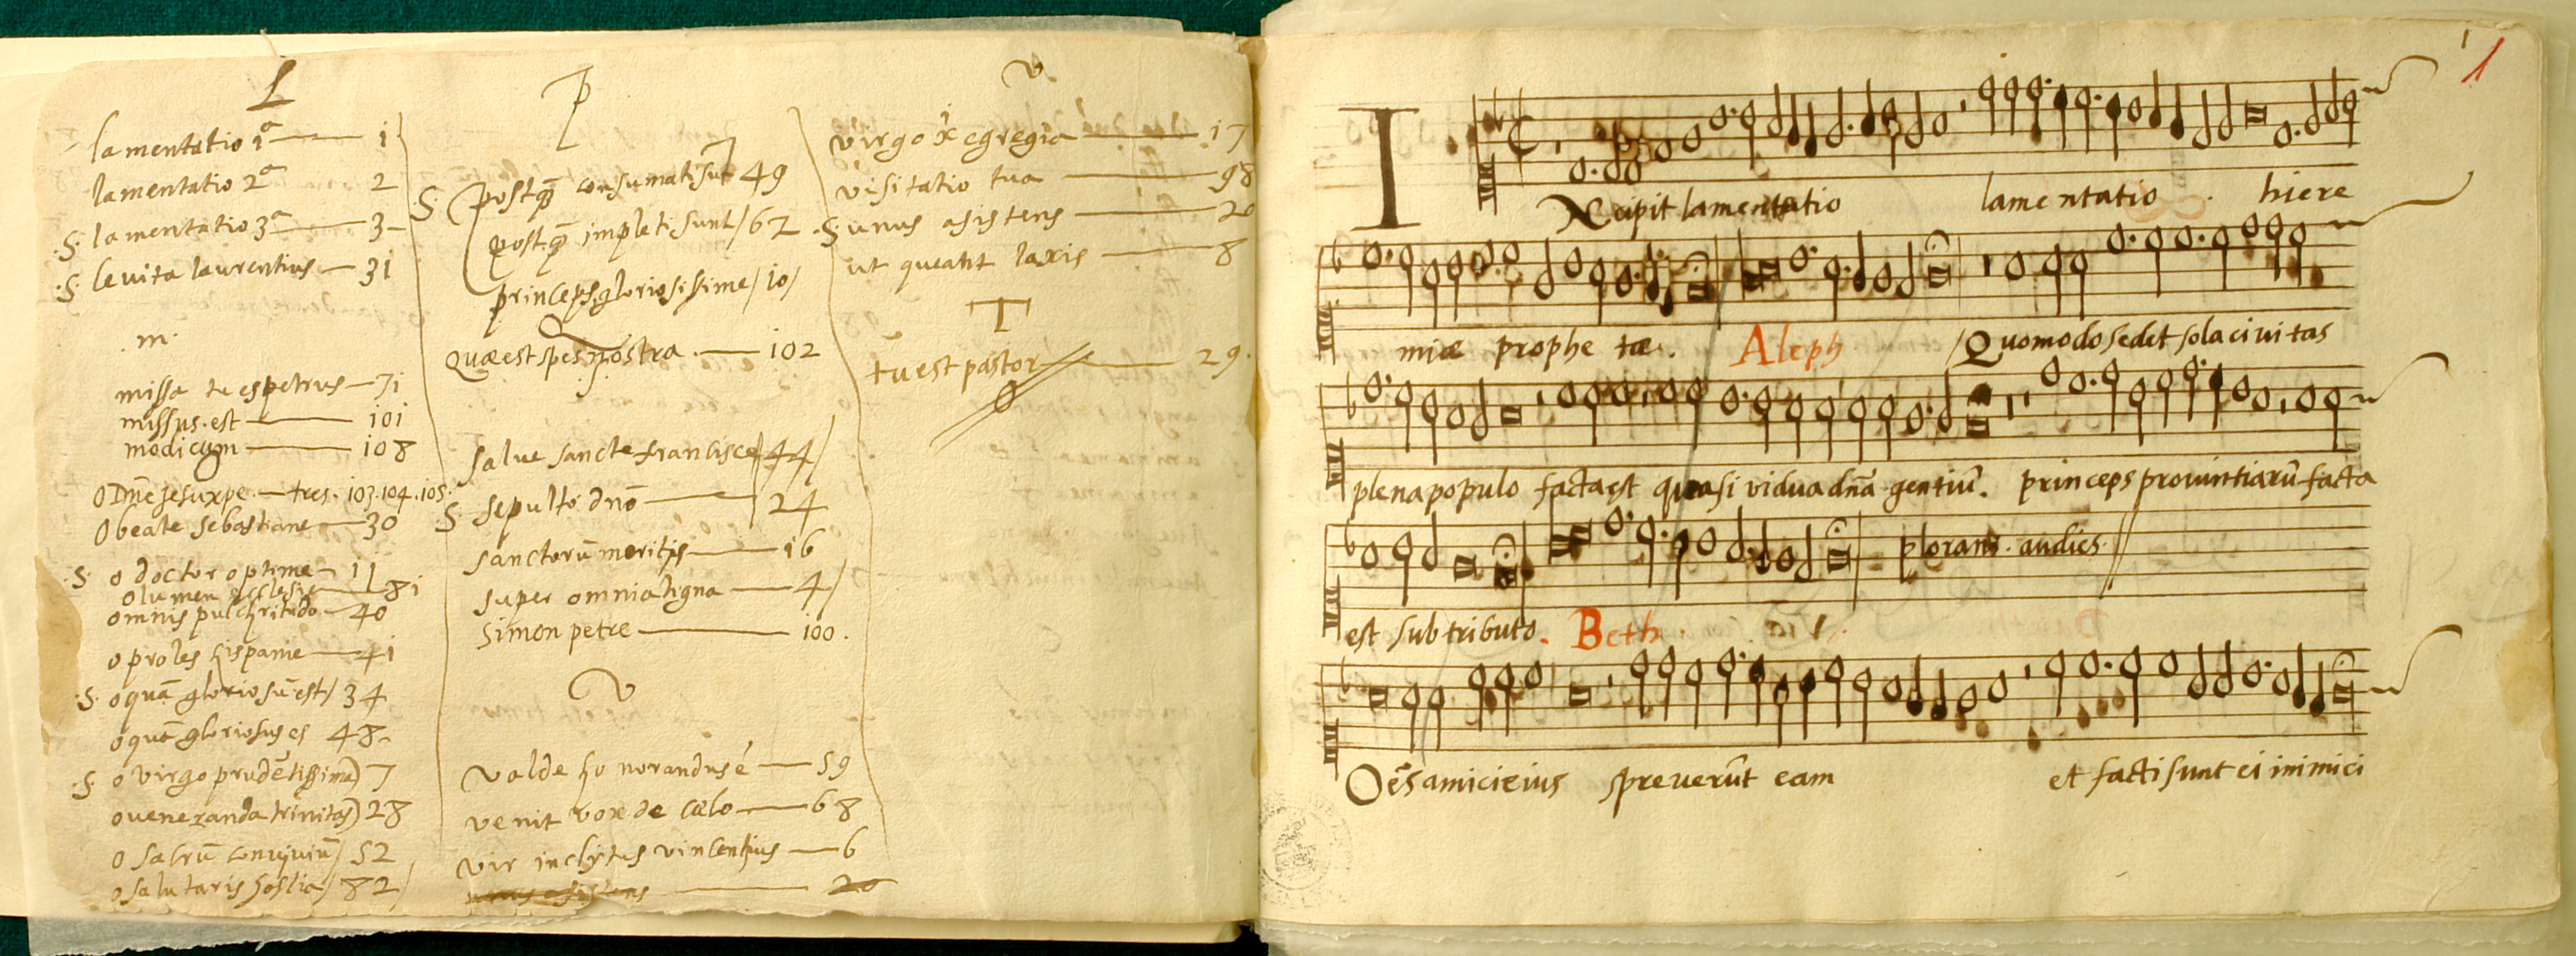 L
lamentatio 1ª 1
lamentatio 2ª 2
.S. lamentatio 3ª 3
.S. levita laurentius 31
.m.
missa tu es petrus 71
missus.est 101
modicum 108
O Dñe Jesu xpe. tres. 103.104.105.
O beate sebastiane 30
.S. o doctor optime 11
o lumen ecclesie 81
omnis pulchritudo 40
o proles hispanie 41
.S. o quã gloriosũ est/ 34
o quã gloriosus es 48
.S. o virgo prudẽtissima) 7
o veneranda trinitas) 28
O sacrũ conviviũ/ 52
o salutaris hostia/ 82/
P
S (postq̃ consumati sũt 49
postq̃ impleti sunt/ 62
princeps gloriosissime/ 10/
Quæ est spes nostra. 102
S
salve sancte francisce 44/
S sepulto dnõ 24
sanctorũ meritis 16
super omnia ligna 4/
simon petre 100.
V
valde honorandus ẽ 59
venit vox de cælo 68
vir inclytus vincentius 6
unus asistens 20
V
virgo x̃ egregia 17
visitatio tua 98
.S unus asistens 20
ut queant laxis 8
T
tu est pastor 29.
1
1
INcipit lamentatio lamentatio hiere
miæ prophe tæ. Aleph Quomodo sedet sola civitas
plena populo facta est quasi vidua dñã gentiũ. princeps provintiarũ facta
plorans. audies.
est sub tributo. Beth.
Oẽs amici eius spreverũt eam et facti sunt ei inimici